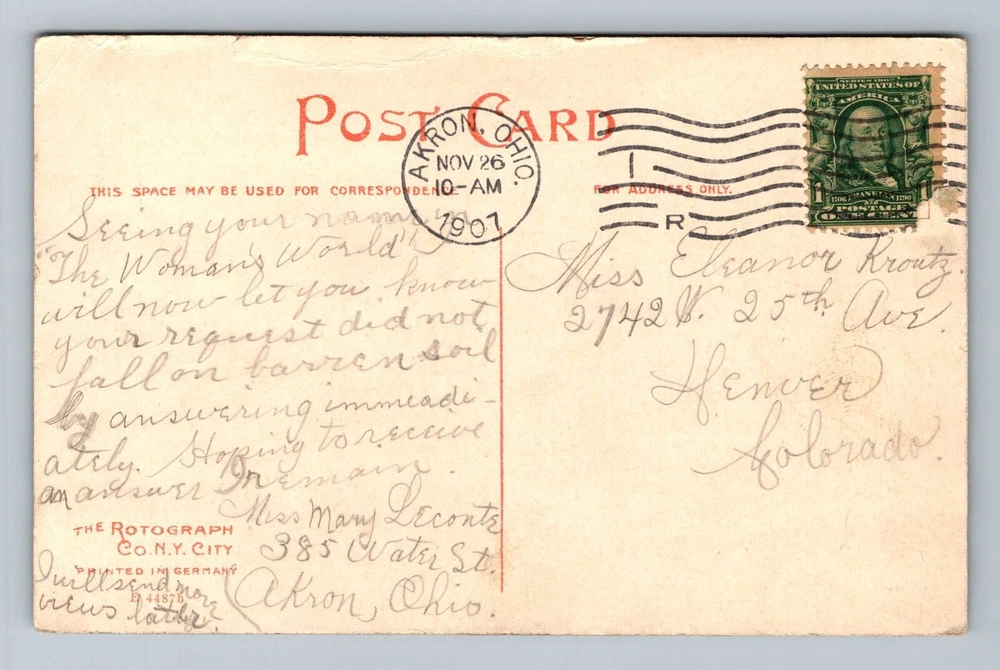 POST CARD
AKRON, OHIO.
NOV 26
10-AM
1907
1
R
SERIES 1902
UNITED STATES OF
AMERICA
1 1
1706 FRANKLIN 1790
POSTAGE
ONE CENT
THIS SPACE MAY BE USED FOR CORRESPONDENCE
FOR ADDRESS ONLY.
Seeing your name in
"The Woman's World"
will now let you know
your request did not
fall on barren soil
by answering immeadi-
ately. Hoping to receive
an answer I remain.
Miss Mary Leconte
385 Water St.
Akron, Ohio.
I will send more
views later.
THE ROTOGRAPH
CO. N.Y. CITY
PRINTED IN GERMANY
E 4487b
Miss Eleanor Kroutz.
2742 W. 25th Ave.
Denver
Colorado.